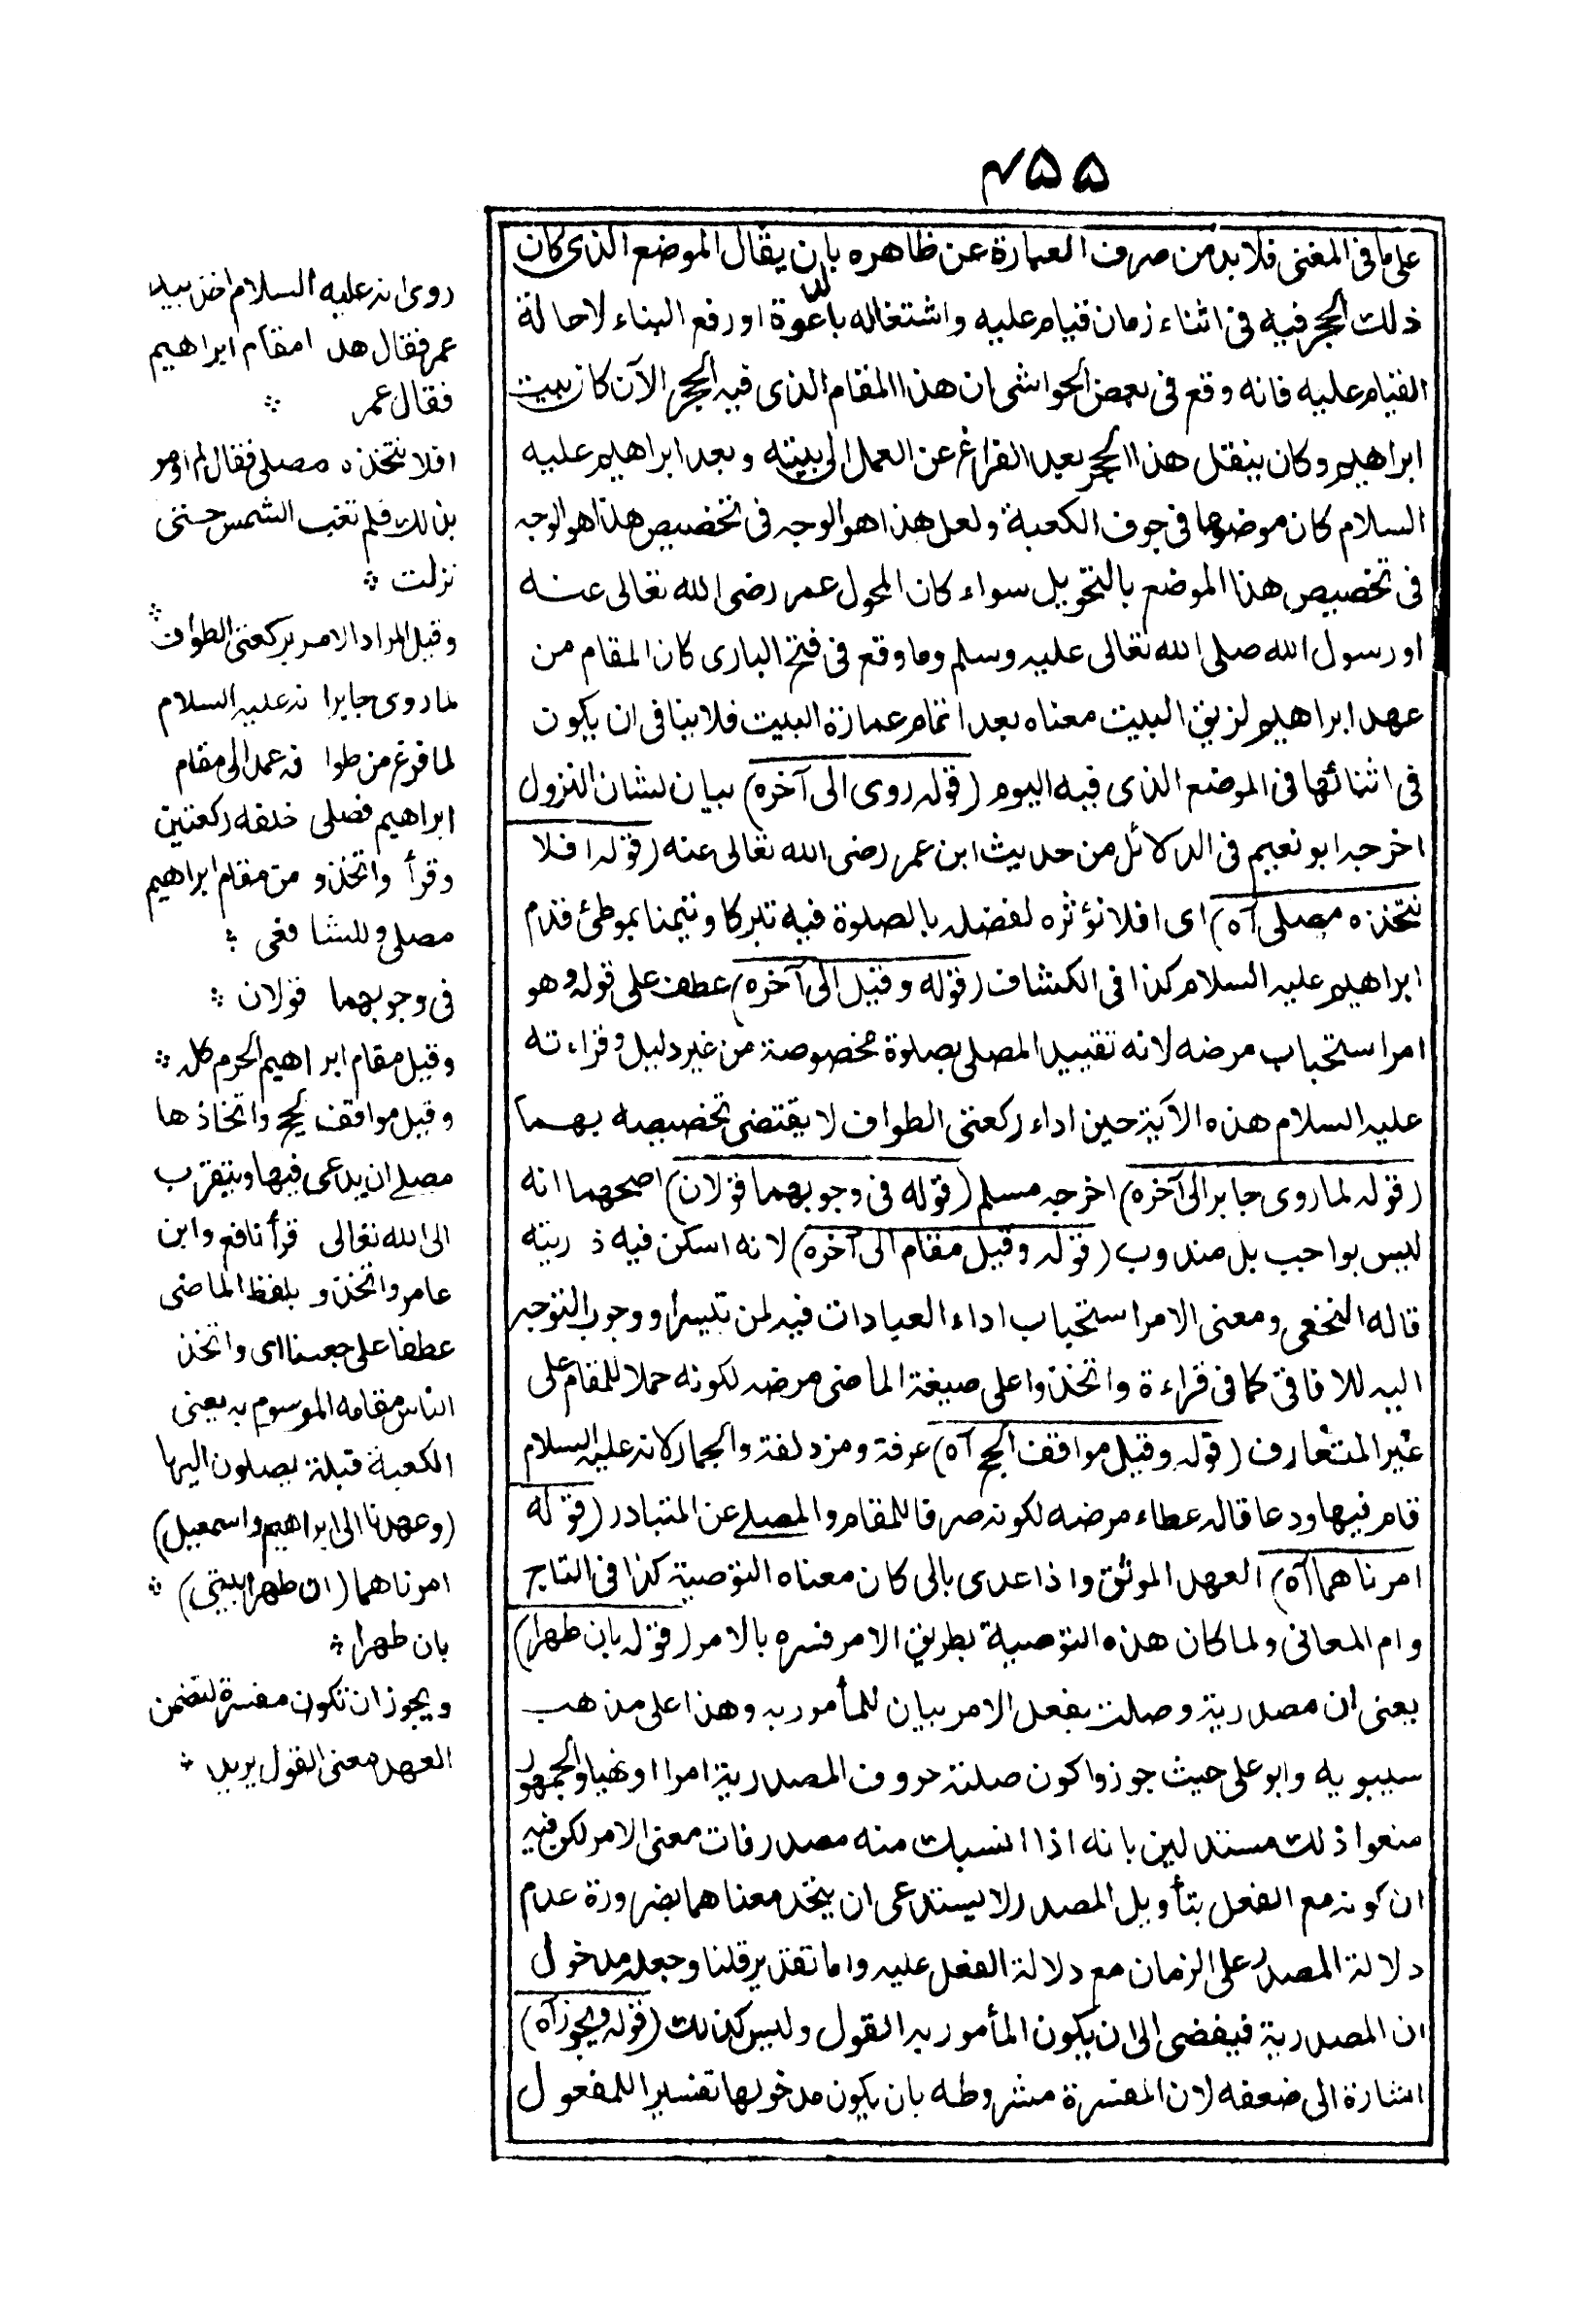 ٤٥٥
على ما فى المغنى فلا بد من صرف العبارة عن ظاهره بان يقال الموضع الذى كان
ذلك الحجر فيه فى اثناء زمان قيام عليه واشتغاله بالدعوة او رفع البناء لا حالة
القيام عليه فانه وقع فى بعض الحواشى ان هذا المقام الذى فيه الحجر الآن كان بيت
ابراهيم وكان ينقل هذا الحجر بعد الفراغ عن العمل الى بيته وبعد ابراهيم عليه
السلام كان موضوعا فى جوف الكعبة ولعل هذا هو الوجه فى تخصيص هذا هو الوجه
فى تخصيص هذا الموضع بالتحويل سواء كان المحول عمر رضى الله تعالى عنه
او رسول الله صلى الله تعالى عليه وسلم وما وقع فى فتح البارى كان المقام من
عهد ابراهيم لزيق البيت معناه بعد اتمام عمارة البيت فلا ينافى ان يكون
فى اثنائها فى الموضع الذى فيه اليوم (قوله روى الى آخره) بيان لشان النزول
اخرجه ابو نعيم فى الدلائل من حديث ابن عمر رضى الله تعالى عنه (قوله افلا
نتخذه مصلى آه) اى افلا نؤثره لفضله بالصلوة فيه تبركا وتيمنا بموطئ قدم
ابراهيم عليه السلام كذا فى الكشاف (قوله وقيل الى آخره) عطف على قوله وهو
امر استحباب مرضه لانه تقييد المصلى بصلوة مخصوصة من غير دليل وقراءته
عليه السلام هذه الآية حين اداء ركعتى الطواف لا يقتضى تخصيصه بهما
(قوله لما روى جابر الى آخره) اخرجه مسلم (قوله فى وجوبهما قولان) اصحهما انه
ليس بواجب بل مندوب (قوله وقيل مقام الى آخره) لانه اسكن فيه ذريته
قاله النخعى ومعنى الامر استحباب اداء العبادات فيه لمن تيسر او وجوب التوجه
اليه للافاقى كما فى قراءة واتخذوا على صيغة الماضى مرضه لكونه حملا للمقام على
غير المتعارف (قوله وقيل مواقف الحج آه) عرفة ومزدلفة والجمار لانه عليه السلام
قام فيها ودعا قاله عطاء مرضه لكونه صرفا للمقام والمصلى عن المتبادر (قوله
امرناهما آه) العهد الموثق واذا عدى بالى كان معناه التوصية كذا فى التاج
وام المعانى ولما كان هذه التوصية بطريق الامر فسره بالامر (قوله بان طهرا)
يعنى ان مصدرية وصلت بفعل الامر بيان للمأمور به وهذا على مذهب
سيبويه وابو على حيث جوزوا كون صلة حروف المصدرية امرا او نهيا والجمهور
منعوا ذلك مستدلين بانه اذا انسبك منه مصدر فات معنى الامر لكن فيه
ان كونه مع الفعل بتأويل المصدر لا يستدعى ان يتخد معناهما بضرورة عدم
دلالة المصدر على الزمان مع دلالة الفعل عليه واما تقدير قلنا وجعله مدخول
ان المصدرية فيفضى الى ان يكون المأمور به القول وليس كذلك (قوله ويجوز آه)
اشارة الى ضعفه لان المفسرة مشروطه بان يكون مدخولها تفسيرا للمفعول
روى انه عليه السلام اخذ بيد
عمر فقال هذا مقام ابراهيم
فقال عمر
افلا نتخذه مصلى فقال لم اومر
بذلك فلم تغب الشمس حتى
نزلت
وقيل المراد الامر بركعتى الطواف
لما روى جابر انه عليه السلام
لما فرغ من طوافه عمد الى مقام
ابراهيم فصلى خلفه ركعتين
وقرأ واتخذو من مقام ابراهيم
مصلى وللشافعى
فى وجوبهما قولان
وقيل مقام ابراهيم الحرم كله
وقيل مواقف الحج واتخاذها
مصلى ان يدعى فيها ويتقرب
الى الله تعالى قرأ نافع وابن
عامر واتخذو بلفظ الماضى
عطفا على جعلنا اى واتخذ
الناس مقامه الموسوم به يعنى
الكعبة قبلة يصلون اليها
(وعهدنا الى ابراهيم واسمعيل)
امرناهما (ان طهرا بيتى)
بان طهرا
ويجوز ان تكون مفسرة لتضمن
العهد معنى القول يريد